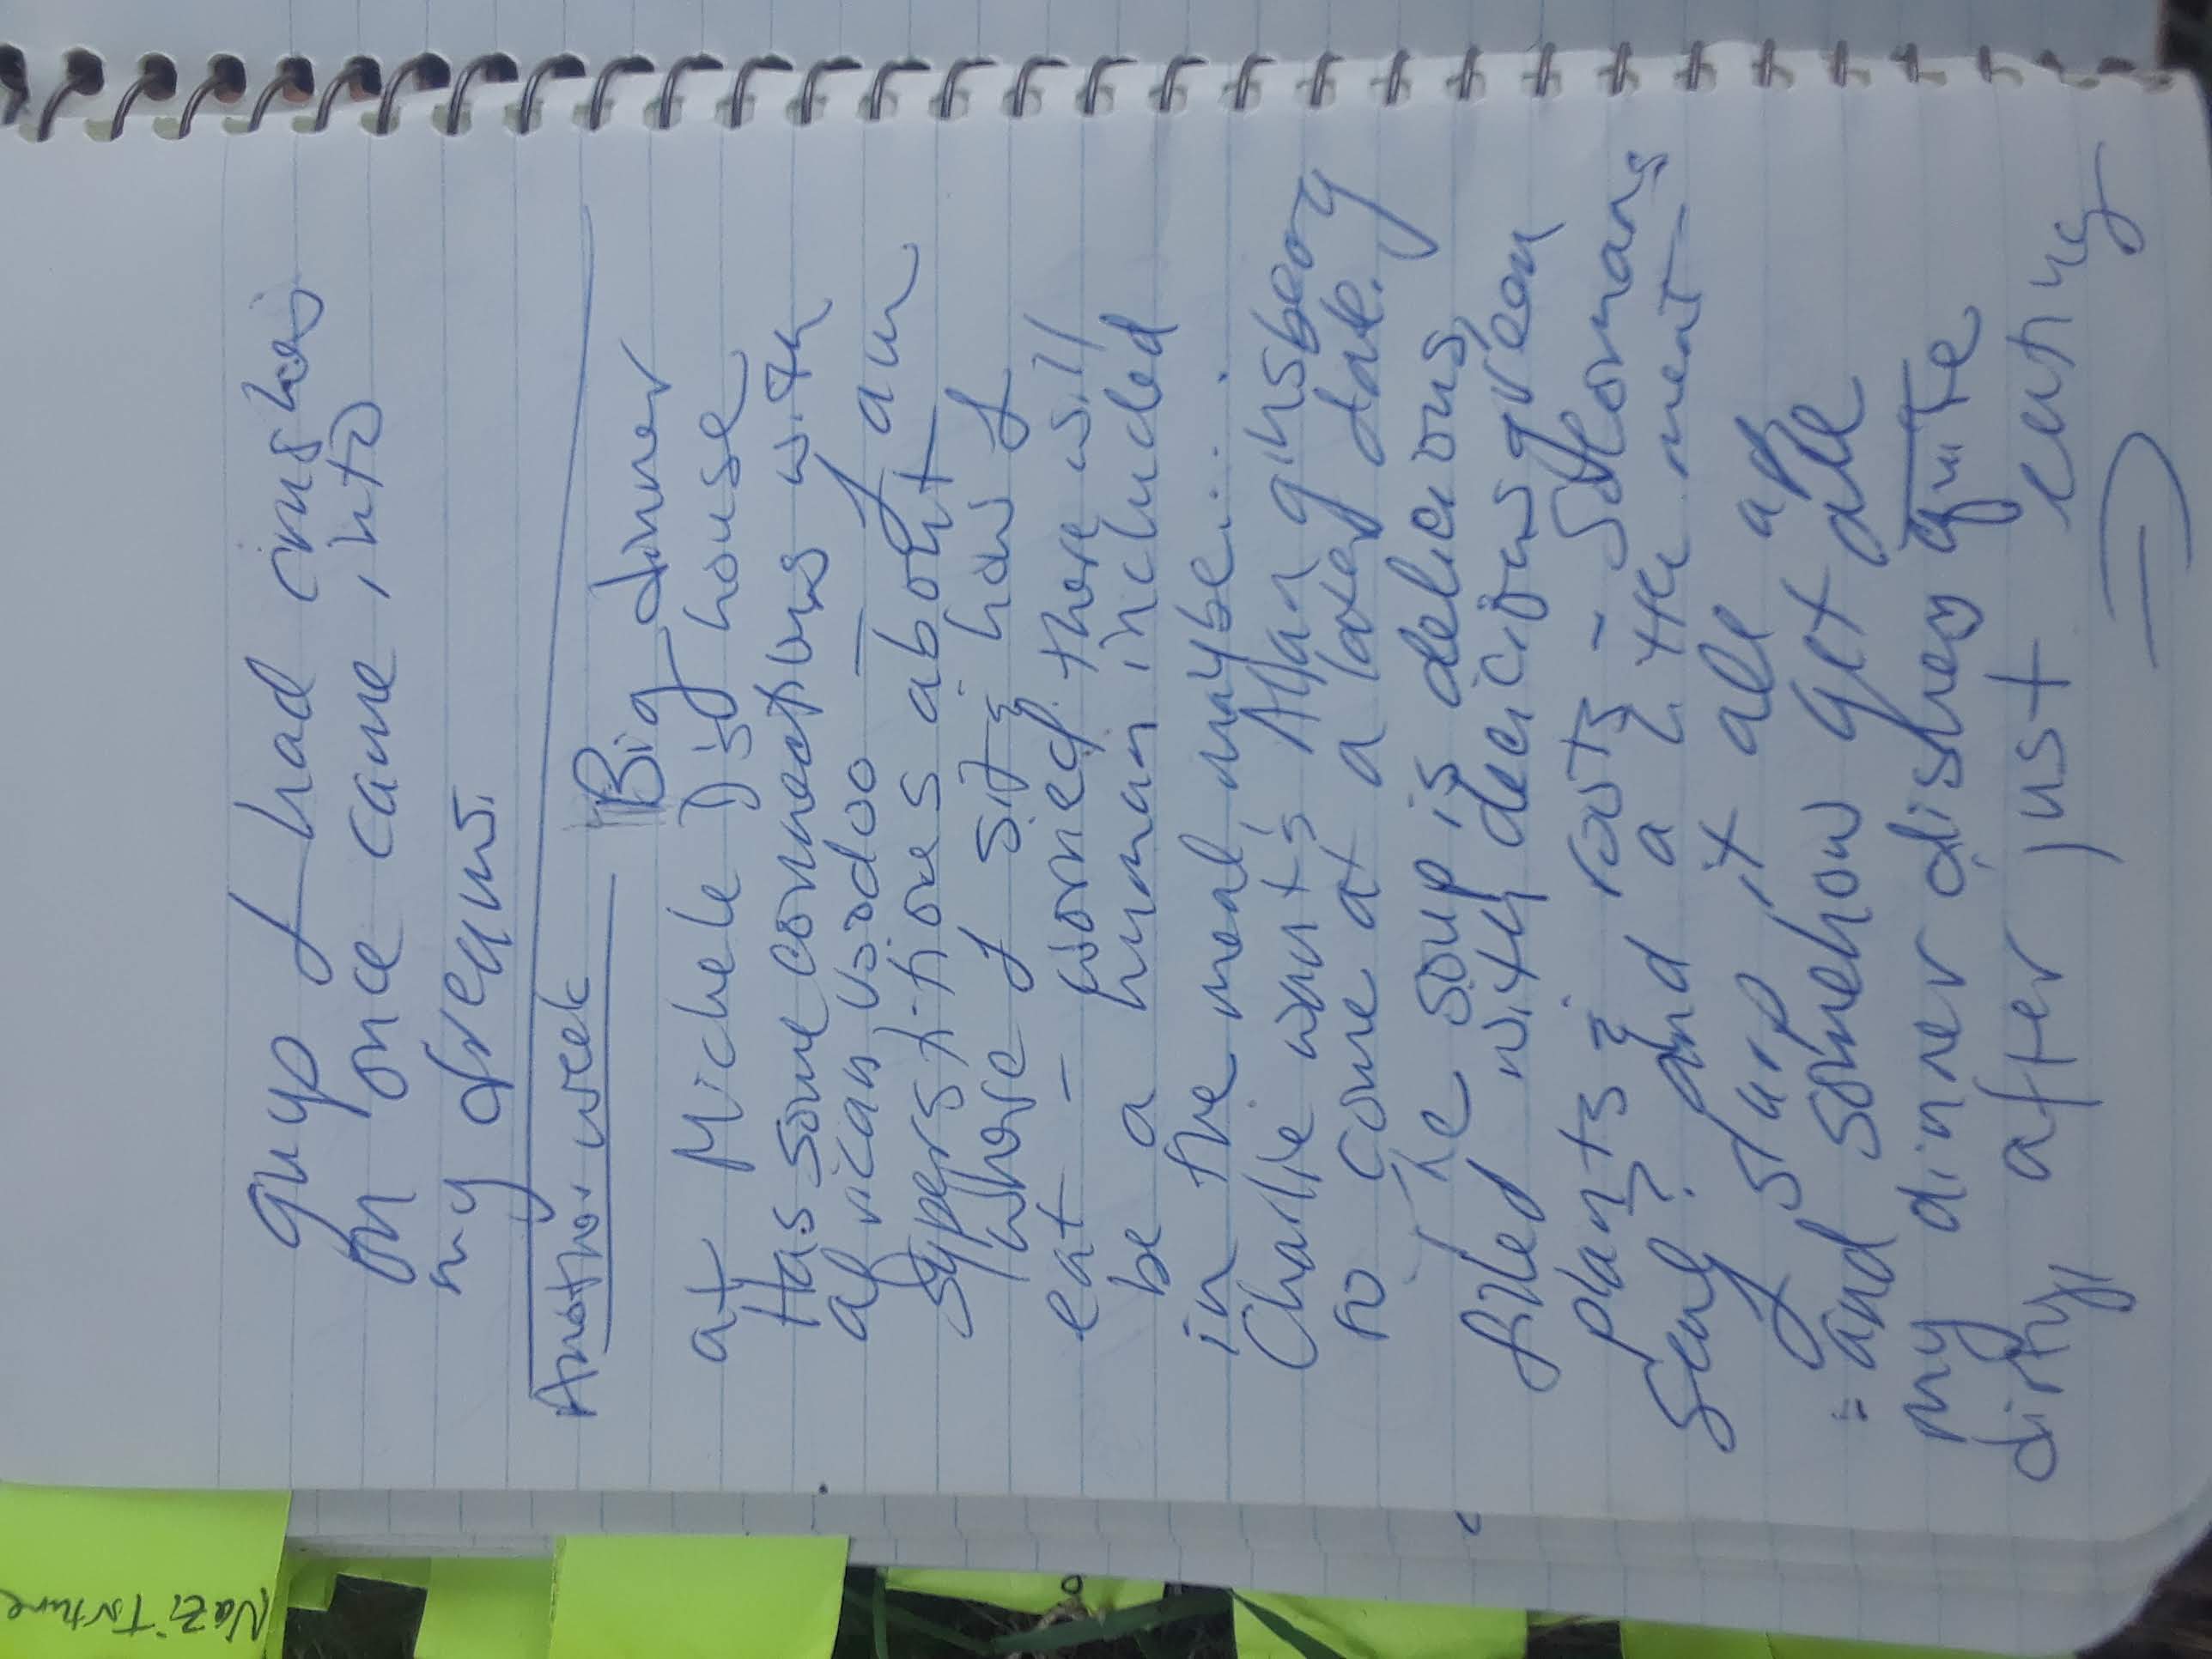 guys I had crushes
on once came into
my dreams.
Another week Big dinner
at Michele D's house
Has some connections with
african voodoo — I am
superstitious about
where I sit & how I
eat – worried there will
be a human included
in the meal maybe...
Charlie wants Allan ginsberg
to come at a later date.
The soup is delicious,
filled with delicious green
plants & roots –
Seal? and a the meat
I slurp it all up
and somehow get all
my dinner dishes quite
dirty after just eating
Nazi Torture